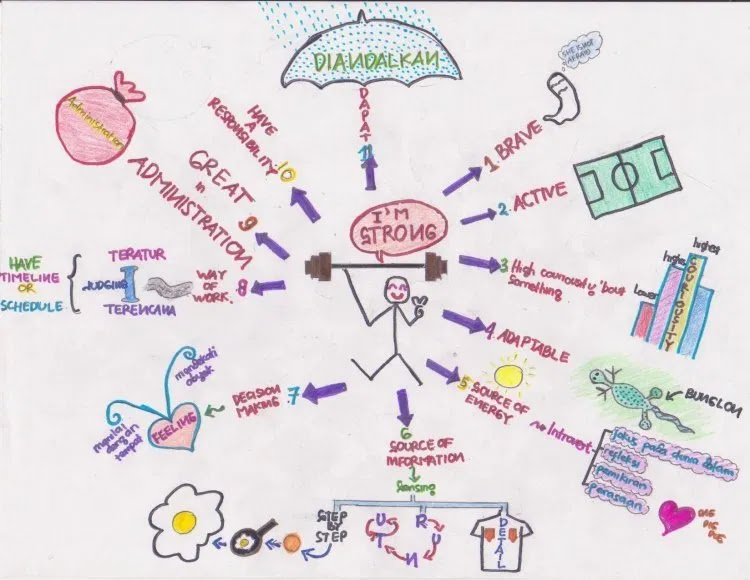 DIANDALKAN
DAPAT
11
I'M
STRONG
1. BRAVE
SHE IS NOT
AFRAID
2. ACTIVE
3 High couriousity 'bout
something
Lower
higher
highest
COURIOUSITY
4. ADAPTABLE
BUNGLON
5 SOURCE OF
ENERGY
Introvert
fokus pada dunia dalam
refleksi
pemikiran
perasaan
6
SOURCE OF
INFORMATION
Sensing
STEP
BY
STEP
RUNTUT
DETAIL
DECISION
MAKING .7
FEELING
mendekati
obyek
menilai
dengan
tempat
WAY
OF
WORK. 8
JUDGING
TERATUR
TERENCANA
HAVE
TIMELINE
OR
SCHEDULE
GREAT
in
ADMINISTRATION
9
Administration
HAVE
A
RESPONSIBILITY. 10